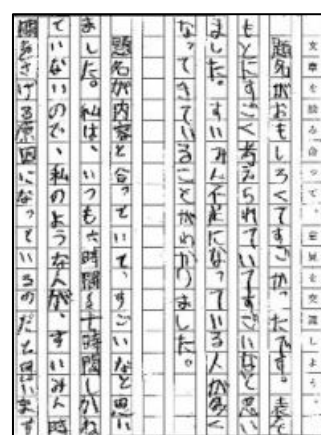 文章を読み合って、意見を交流しよう。
題名がおもしろくてすごかったです。表を
もとにすごく考えられていてすごいなと思い
ました。すいみん不足になっている人が多く
なってきていることがわかりました。
題名が内容と合っていて、すごいなと思い
ました。私は、いつも六時間〜七時間しかね
ていないので、私のような人が、すいみん時
間をさげる原因になっているのだと思います